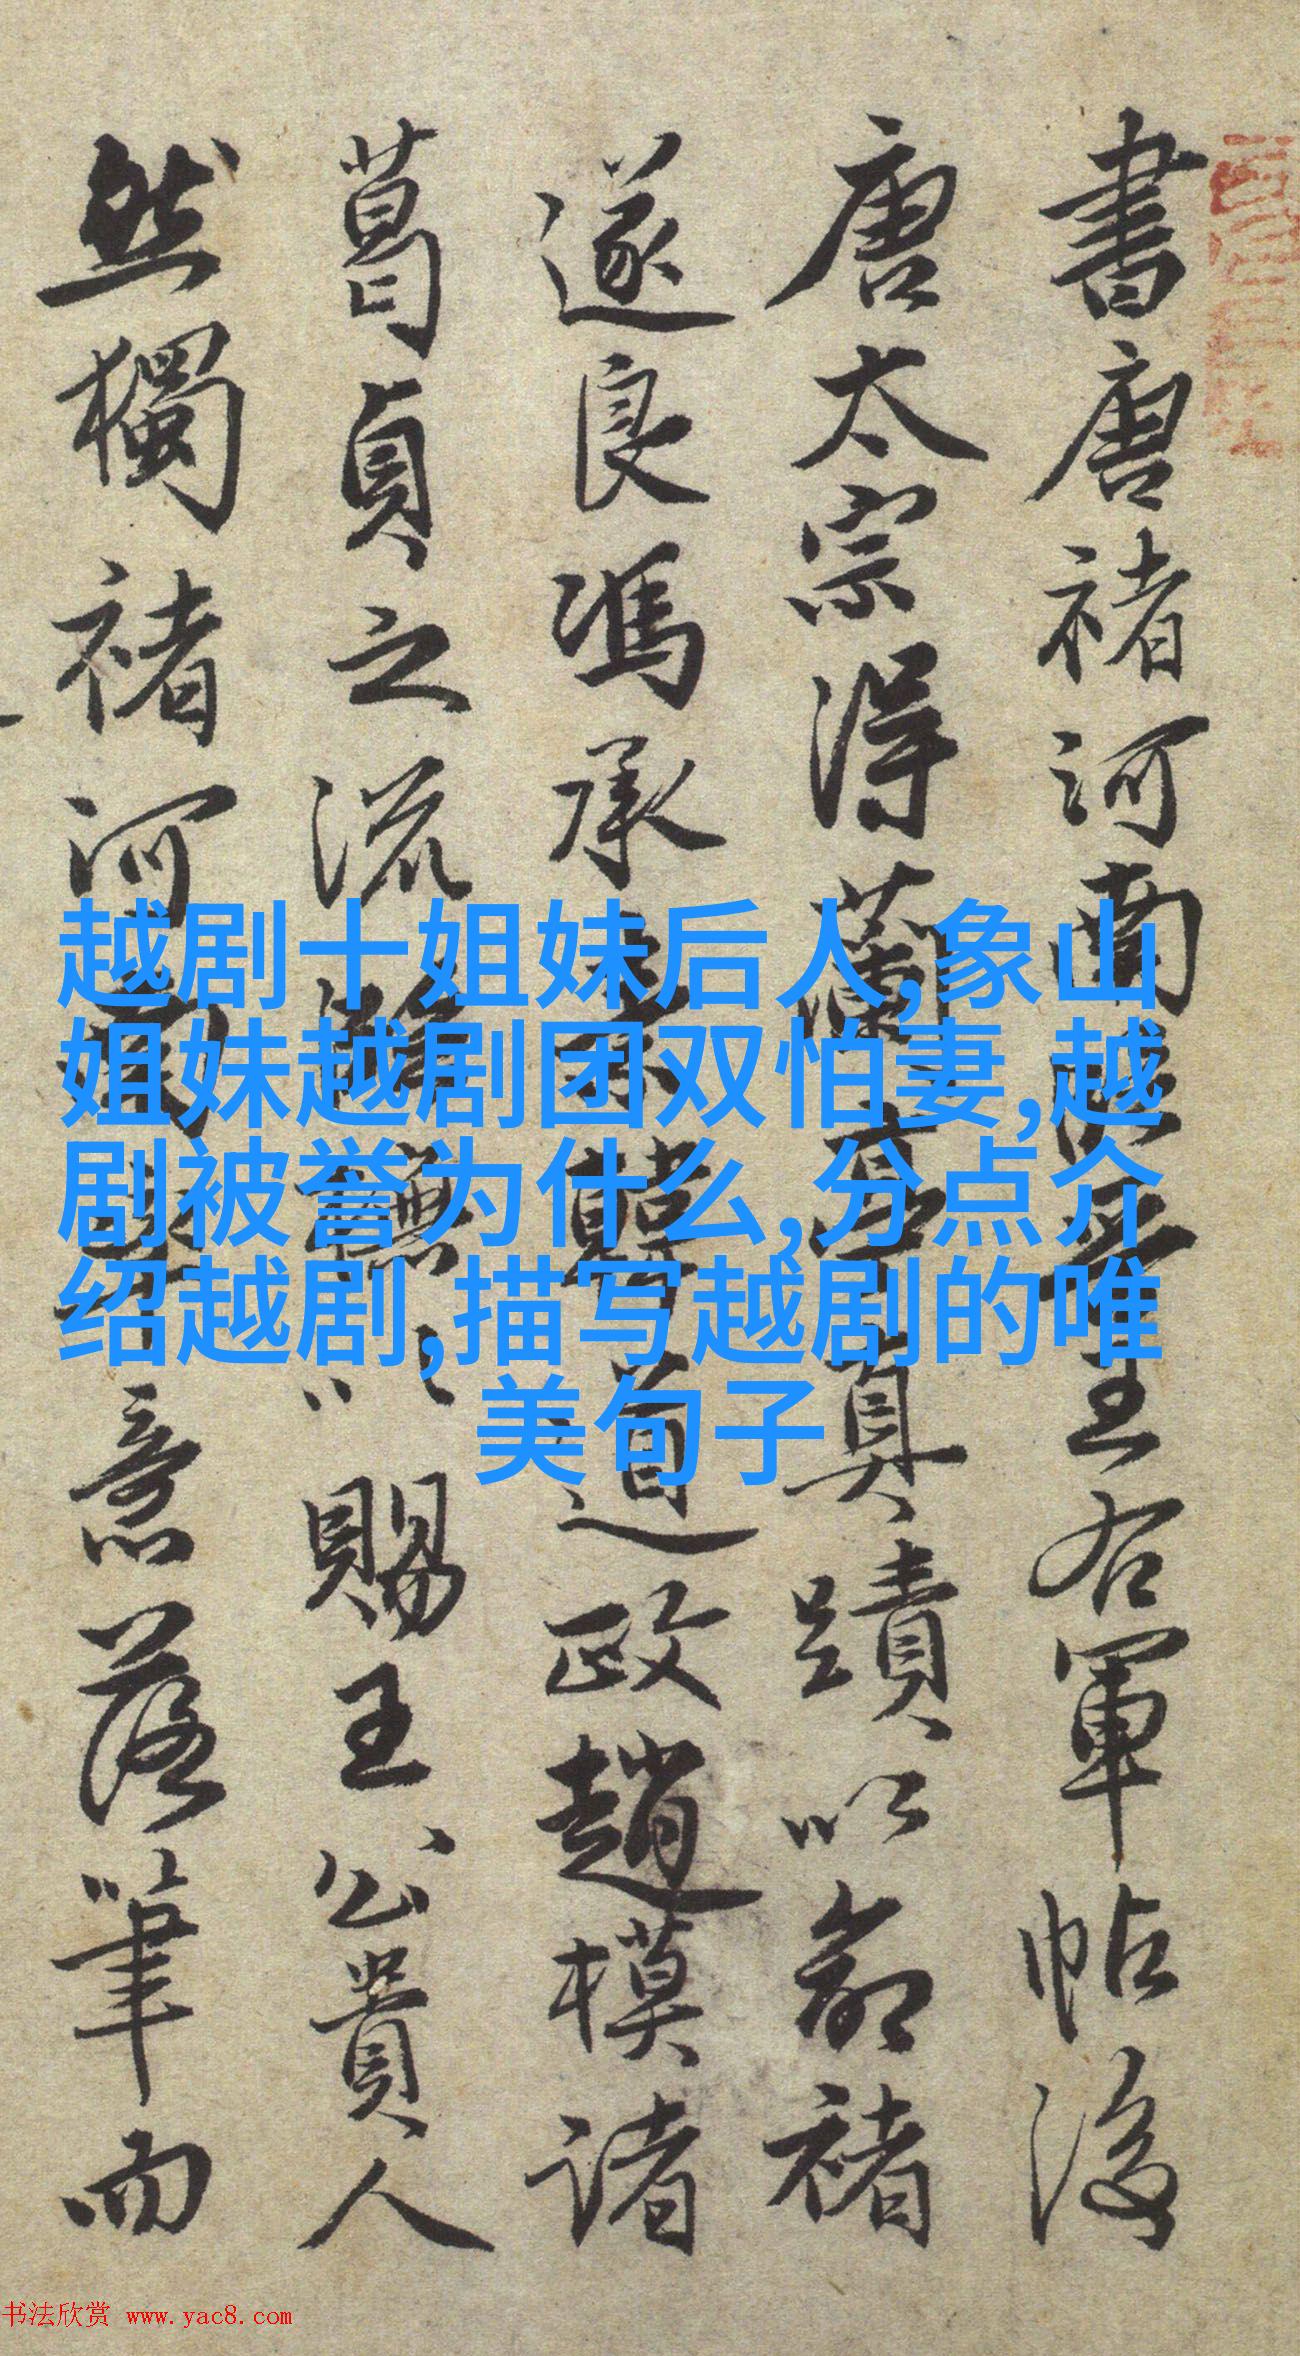 越剧十姐妹后人,象山
姐妹越剧团双怕妻,越
剧被誉为什么,分点介
绍越剧,描写越剧的唯
美句子
書唐褚河南王右軍帖後
唐太宗得蘭亭真蹟以命褚
遂良馮承素韓道政趙模諸
葛貞之流賜王公貴人
然獨褚河南意落筆而
书法欣赏 www.yac8.com